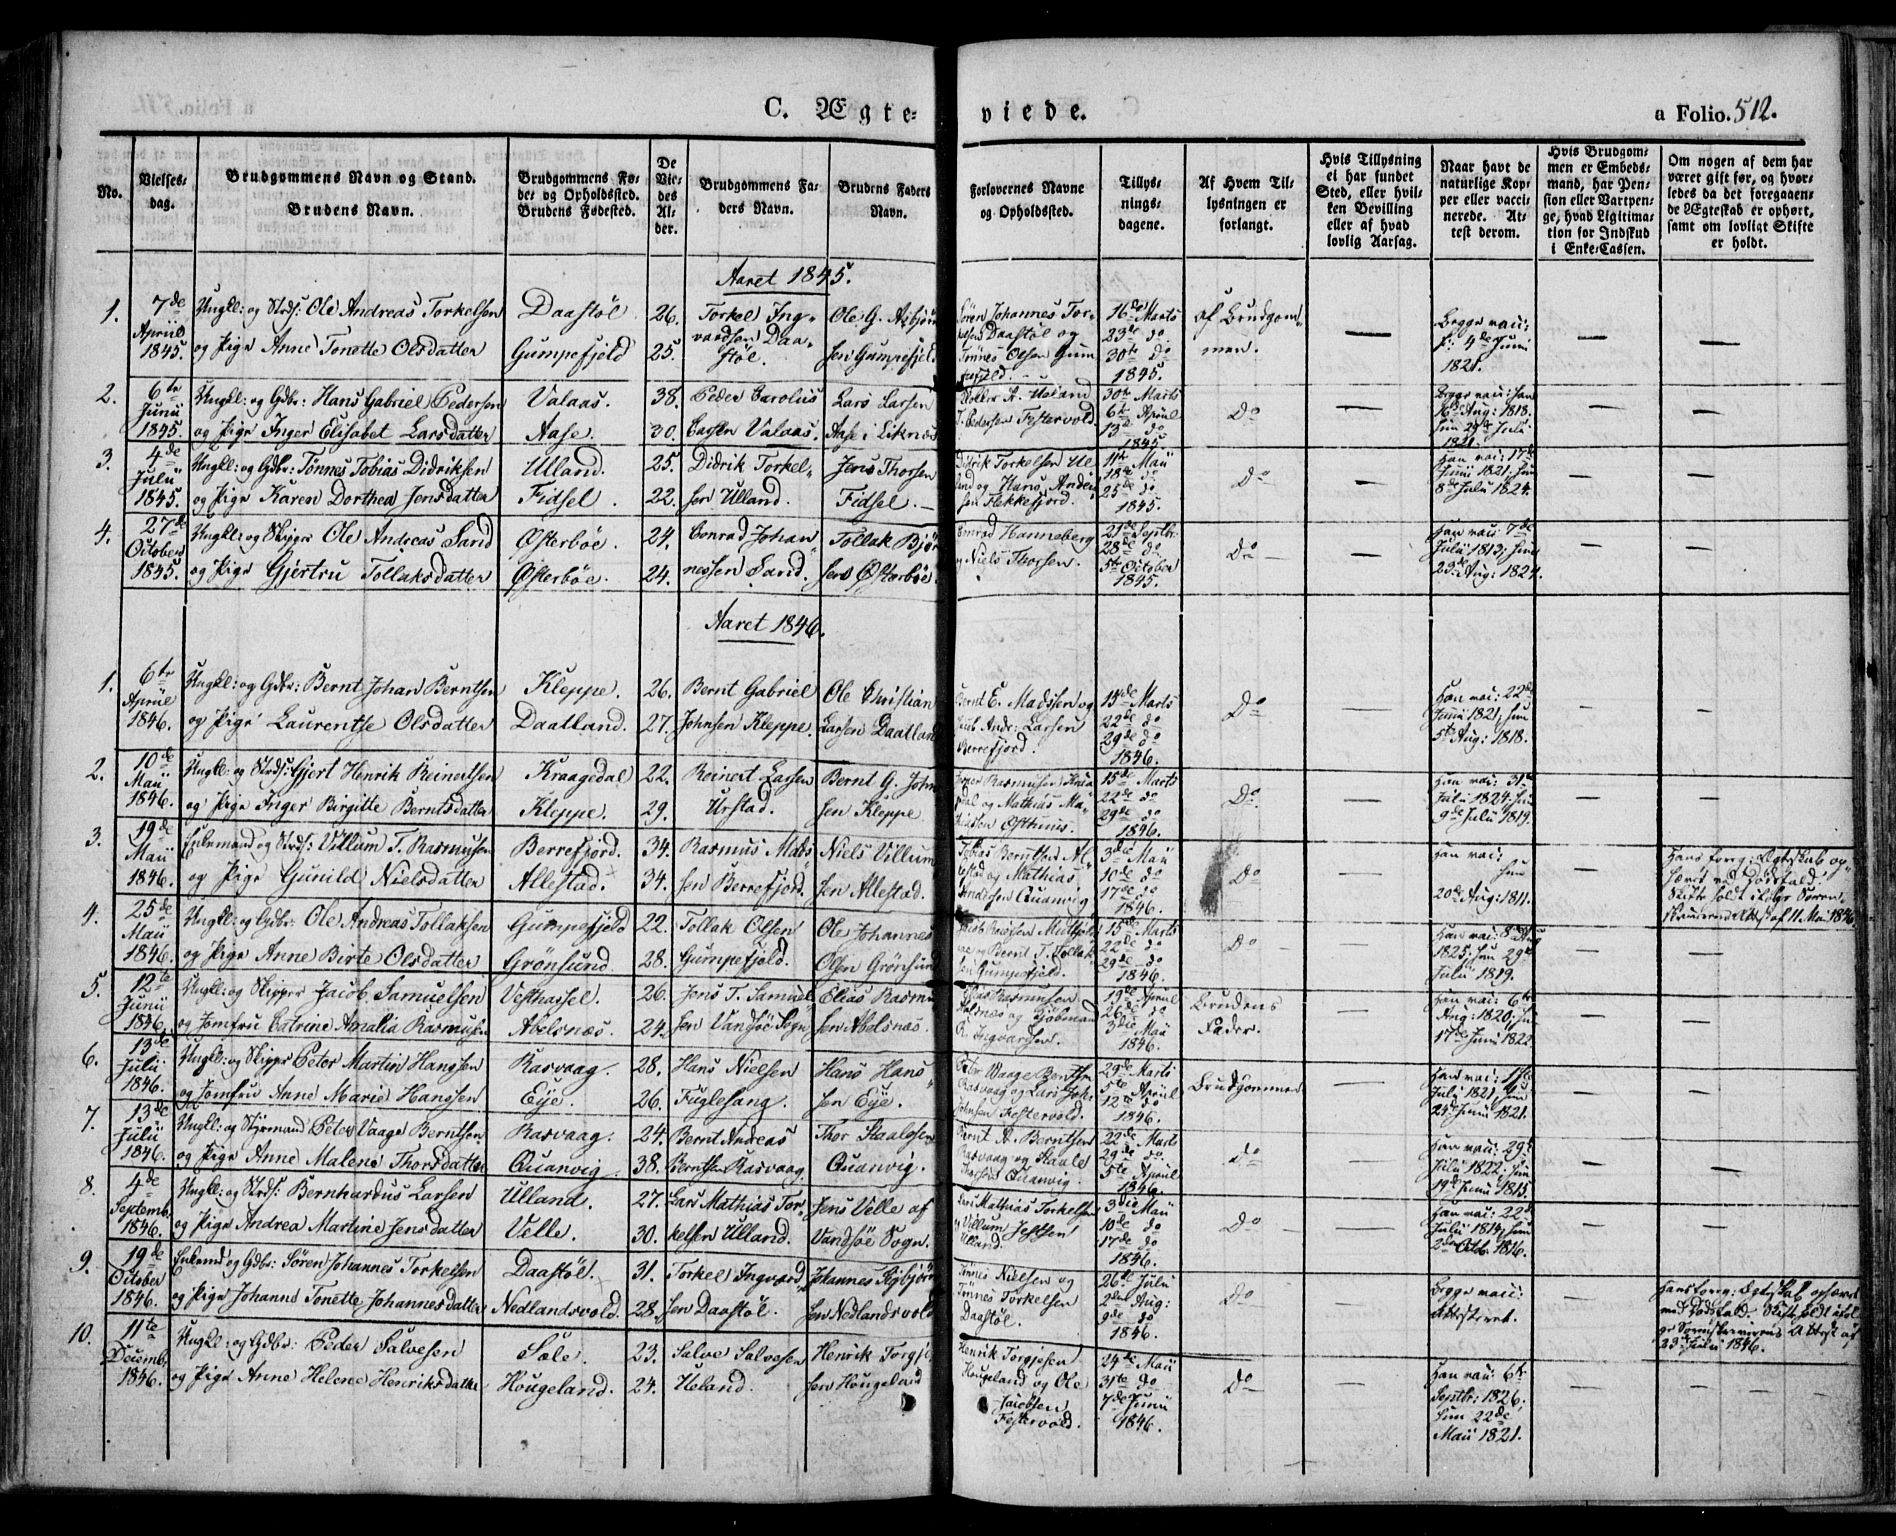 C. Ægte-
viede.
a Folio. 512.
No.
Vielses-
dag.
Brudgommens Navn og Stand.
Brudens Navn.
Brudgommens Fø-
de- og Opholdssted.
Brudens Fødested.
De
Vie-
des
Al-
der.
Brudgommens Fa-
ders Navn.
Brudens Faders
Navn.
Forlovernes Navne
og Opholdssted.
Tillys-
nings-
dagene.
Af Hvem Til-
lysningen er
forlangt.
Hvis Tillysning
ei har fundet
Sted, eller hvil-
ken Bevilling
eller af hvad
lovlig Aarsag.
Naar havt de
naturlige Kop-
per eller vacci-
nerede. At-
test derom.
Hvis Brudgom-
men er Embeds-
mand, har Pen-
sion eller Vartpen-
ge, hvad Ligitima-
tion for Indskud
i Enke-Cassen.
Om nogen af dem har
været gift før, og hvor-
ledes da det foregaaen-
de Ægteskab er ophørt,
samt om lovligt Skifte
er holdt.
Aaret 1845.
1. 7de April 1845.
Ungkl: og Strds: Ole Andreas Torkelsen
og Pige Anne Tonette Olsdatter
Daastöl
Gumpefjeld
26.
25.
Torkel Ing-
vardsen Daa-
stöl.
Ole G. Asbjörn
sen Gumpefjeld
Sören Johannes Tor-
kelsen Daastöl og
Tönnes Olsen Gum
pefjeld.
16de Marts
23de do
30te do
1845.
af Brudgom-
men.
Begge vac:
d: 4de Juni
1821.
2. 6te Junii 1845.
Ungkl: og Gdbr: Hans Gabriel Pedersen
og Pige Inger Elisabet Larsdatter
Valaas.
Aase.
38.
30.
Peder Carolus
Larsen Valaas.
Lars Larsen
Aase i Liknæs
A. Ueland
Pedersen Festervold.
30te Marts
6te April
13de do
1845
Do
Begge vac: han
16de Aug: 1818.
hun 29de Juli
1821.
3. 4de Julii 1845.
Ungkl: og Gdbr: Tönnes Tobias Didriksen
og Pige Karen Dorthea Jensdatter
Ulland.
Fidsel.
25.
22.
Didrik Torkel-
sen Ulland.
Jens Thorsen
Fidsel.
Didrik Torkelsen Ul
land og Hans Ander
sen Flekkefjord.
11te Maii
18de do
25de do
1845.
Do
Han vac: 17de
Junii 1821. hun
8de Julii 1824.
4. 27de October 1845.
Ungkl: og Skipper Ole Andreas Sarid
og Pige Gjertru Tollaksdatter
Østerböe.
Østerböe.
24.
24.
Conrad Johan
nessen Sarid.
Tollak Bjön
sen Østerböe
Conrad Hanneberg
og Niels Thorsen.
21de Septbr:
28de do
5te October
1845.
Do
Han vac: 7de
Julii 1813; hun
23de Aug: 1824.
Aaret 1846.
1. 6te April 1846.
Ungkl: og Gdbr: Bernt Johan Berntsen
og Pige Laurentse Olsdatter
Kleppe.
Daatland.
26.
27.
Bernt Gabriel
Johnsen Kleppe.
Ole Christian
Larsen Daatland
Bernt E. Madssen og
Jacob Andr: Larsen
Berrefjord.
15de Marts
22de do
29de do
1846.
Do
Han vac: 22de
Junii 1821, hun
5te Aug: 1818.
2. 10de Maii 1846.
Ungkl: og Strds: Gjert Henrik Reinertsen
og Pige Inger Birgitte Berntsdatter
Kraagedal
Kleppe.
22.
29.
Reinert Larsen
Urstad.
Bernt G. John
sen Kleppe
Rasmusen Kraa
dal og Mathias Ma-
thiassen Østhuus.
15de Marts
22de do
29de do
1846.
Do
Han vac: 31te
Julii 1824. hun
9de Julii 1819.
3. 19de Maii 1846.
Enkemand og Strds: Villum T. Rasmusen
og Pige Gunild Nielsdatter
Berrefjord.
Allestad.
34.
34.
Rasmus Mads
sen Berrefjord.
Niels Villum
sen Allestad.
Tobias Berntsen Al
lestad og Mathias
Andersen Quanvig
3de Maii
10de do
17de do
1846.
Do
Han vac:
hun
20de Aug: 1811.
Hans foreg: Ægteskab op-
hævet ved Dödsfald.
Skifte holdt ifölge Soren-
skriverens Attest af 11. Mai 1846
4. 25de Maii 1846.
Ungkl: og Gdbr: Ole Andreas Tollaksen
og Pige Anne Birte Olsdatter
Gumpefjeld
Grönsund.
22.
28.
Tollak Olsen
Gumpefjeld.
Ole Johannes
Olsen Grönsund
og Bernt T. Tollak
sen Gumpefjeld.
15de Marts
22de do
29de do
1846.
Do
Han vac: 8de Aug
1825: hun 29de
Julii 1819.
5. 12te Junii 1846.
Ungkl: og Skipper Jacob Samuelsen
og Jomfru Catrine Amalia Rasmusen
Vesthassel.
Abelsnæs.
26.
24.
Jens T. Samuel
sen Vandsöe Sogn
Elias Rasmu
sen Abelsnæs.
Elias Rasmusen
Abelsnæs og Kjöbmand
O. Ingvartsen.
19de April
26de do
3die Maii
1846.
Brudens
Fader.
Han vac: 6te
Aug: 1820; hun
17de Junii 1822.
6. 13de Julii 1846.
Ungkl: og Skipper Peter Martin Hansen
og Jomfru Anne Marie Hansen
Rasvaag.
Eye.
28.
26.
Hans Nielsen
Fuglesang.
Hans Hans
sen Eye.
Peter Waage Berntsen
Rasvaag og Lars Joh:
Johnsen Festervold.
29de Marts
5te April
12te do
1846.
Brudgommen
Han vac: 1ste
Julii 1821, hun
24de Junii 1821.
7. 13de Julii 1846.
Ungkl: og Styrmand Peter Vaage Berntsen
og Pige Anne Malene Thorsdatter
Rasvaag.
Quanvig.
24.
38.
Bernt Andreas
Berntsen Rasvaag
Thor Staalesen
Quanvig.
Bernt A. Berntsen
Rasvaag og Staale
Thorsen Quanvig.
22de Marts
29de do
5te April
1846.
Do
Han vac: 29de
Julii 1822. hun
19de Junii 1815.
8. 4de Septemb. 1846.
Ungkl: og Strds: Bernhardus Larsen
og Pige Andrea Martine Jensdatter
Ulland.
Velle.
27.
30.
Lars Mathias Tor
kelsen Ulland.
Jens Velle af
Vandsöe Sogn.
Lars Mathias Torkelsen
og Villum Jensen
Ulland.
3die Maii
10de do
17de do
1846.
Do
Han vac: 22de
Julii 1819, hun
2den Octb: 1816.
9. 19de October 1846.
Enkemd og Gdbr: Sören Johannes Torkelsen
og Pige Johanne Tonette Johannesdatter
Daastöl.
Nedlandsvold.
31.
28.
Torkel Ingvard
sen Daastöl.
Johannes Asbjörn
sen Nedlandsvold
Tönnes Nielsen og
Tönnes Torkelsen
Daastöl.
26de Julii
2den Aug:
9de do
1846.
Do
Begge vac:
Attesteret.
Hans foreg: Ægteskab ophævet
ved Dödsfald. Skifte holdt iföl-
ge Sorenskriverens Attest af
23de Julii 1846.
10. 11te Decemb. 1846.
Ungkl: og Gdbr: Peder Salvesen
og Pige Anne Helene Henriksdatter
Sole.
Hougeland.
23.
24.
Salve Salvesen
Ueland.
Henrik Torgje
sen Hougeland
Henrik Torgjesen
Hougeland og Ole
Jacobsen
Festervold.
24de Maii
31te do
7de Junii
1846.
Do
Han vac: 6te
Septbr: 1826.
hun 22de
Maii 1821.